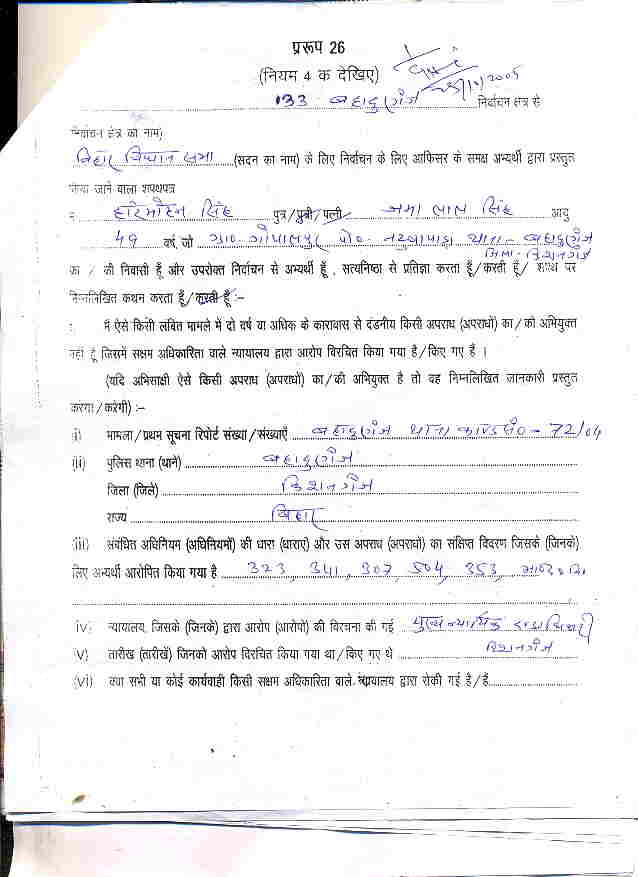 प्ररूप 26
(नियम 4 क देखिए)
133 बहादुरगंज निर्वाचन क्षेत्र से
निर्वाचन क्षेत्र का नाम)
बिहार विधान सभा (सदन का नाम) के लिए निर्वाचन के लिए आफिसर के समक्ष अभ्यर्थी द्वारा प्रस्तुत
किया जाने वाला शपथपत्र
हरिमोहन सिंह पुत्र/पुत्री/पत्नी जमा लाल सिंह आयु
49 वर्ष, जो ग्रा०-गोपालपुर पो०- थाना- बहादुरगंज
जिला-किशनगंज
का / की निवासी हूँ और उपरोक्त निर्वाचन से अभ्यर्थी हूँ , सत्यनिष्ठा से प्रतिज्ञा करता हूँ/करती हूँ/ शपथ पर
निम्नलिखित कथन करता हूँ/करती हूँ :-
मैं ऐसे किसी लंबित मामले में दो वर्ष या अधिक के कारावास से दंडनीय किसी अपराध (अपराधों) का/की अभियुक्त
नहीं हूँ जिसमें सक्षम अधिकारिता वाले न्यायालय द्वारा आरोप विरचित किया गया है/किए गए है ।
(यदि अभिसाक्षी ऐसे किसी अपराध (अपराधों) का/की अभियुक्त है तो वह निम्नलिखित जानकारी प्रस्तुत
करेगा/करेगी) :-
i) मामला/प्रथम सूचना रिपोर्ट संख्या/संख्याएँ बहादुरगंज थाना काण्ड सं०- 72/04
ii) पुलिस थाना (थाने) बहादुरगंज
जिला (जिले) किशनगंज
राज्य बिहार
(iii) संबंधित अधिनियम (अधिनियमों) की धारा (धाराएं) और उस अपराध (अपराधों) का संक्षिप्त विवरण जिसके (जिनके)
लिए अभ्यर्थी आरोपित किया गया है 323, 341, 307, 504, 353, भा०द०वि०
iv) न्यायालय, जिसके (जिनके) द्वारा आरोप (आरोपों) की विरचना की गई मुख्य न्यायिक दण्डाधिकारी
v) तारीख (तारीखें) जिनको आरोप विरचित किया गया था/किए गए थे किशनगंज
(vi) क्या सभी या कोई कार्यवाही किसी सक्षम अधिकारिता वाले न्यायालय द्वारा रोकी गई है/हैं